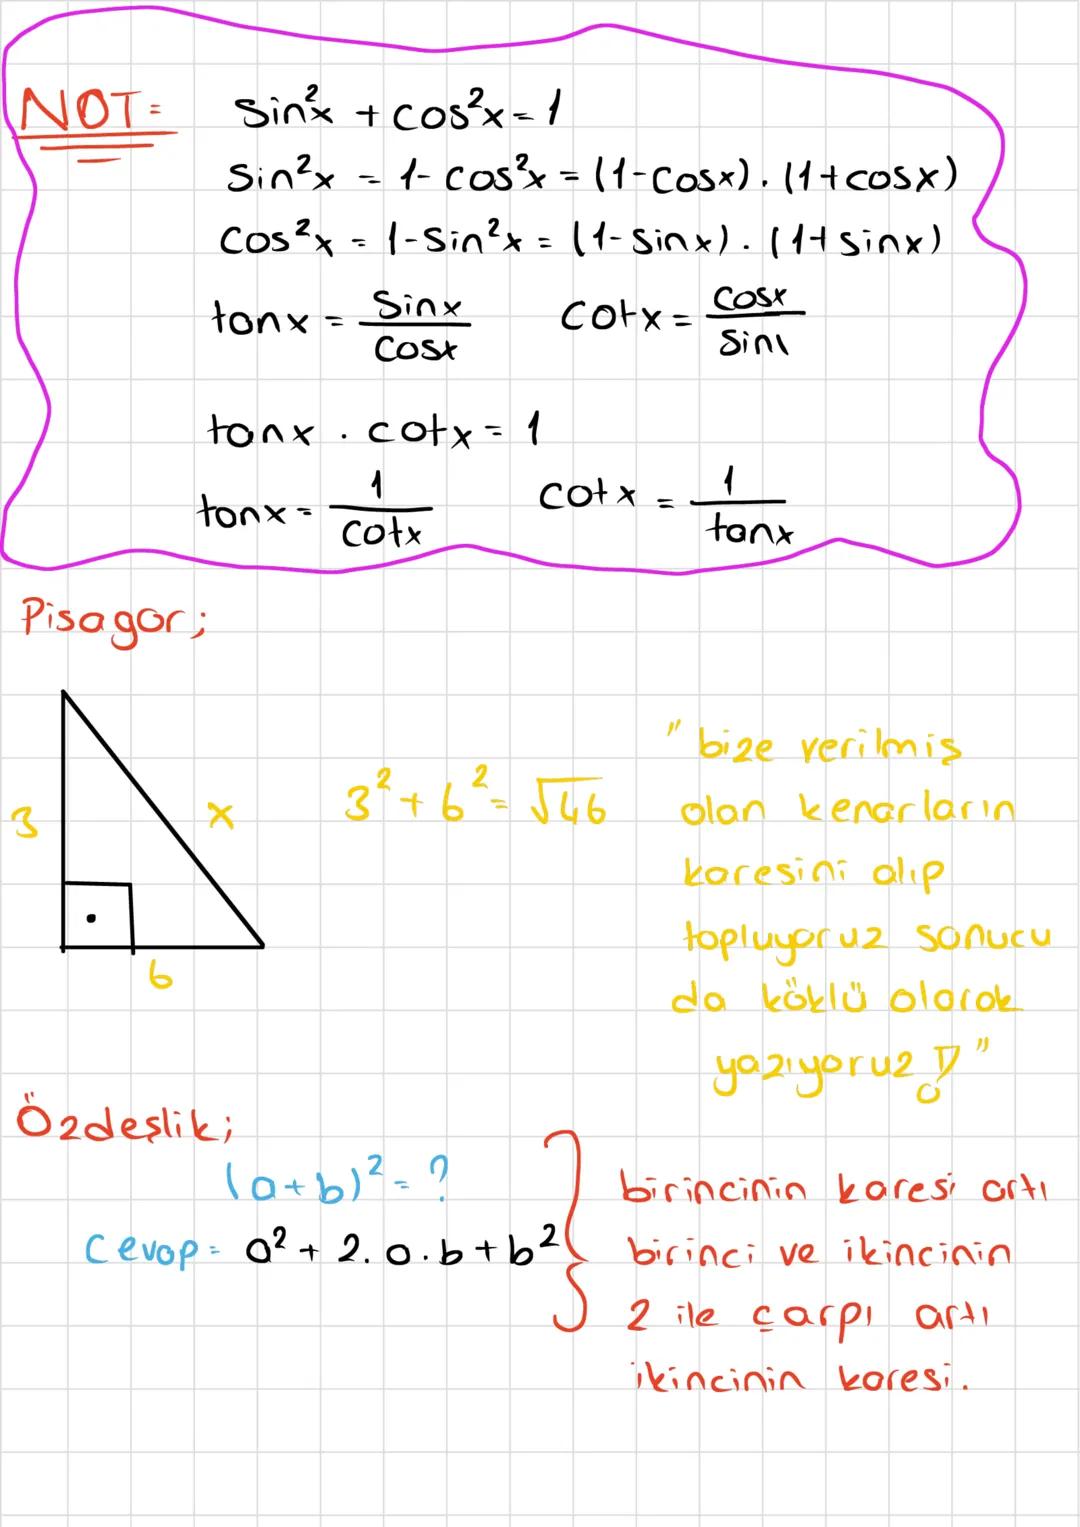 NOT= sin²x + cos²x = 1
sin²x = 1 - cos²x = (1-cosx) . (1+cosx)
cos²x = 1 - sin²x = (1-sinx) . (1+sinx)
tanx = sinx/cosx cotx = cosx/sinx
tanx . cotx = 1
tanx = 1/cotx cotx = 1/tanx
Pisagor;
3
x
6
3² + 6² = √46
"bize verilmiş
olan kenarların
karesini alıp
topluyoruz sonucu
da köklü olarak
yazıyoruz!"
Özdeşlik;
(a+b)² = ?
Cevap = a² + 2.a.b + b²
birincinin karesi artı
birinci ve ikincinin
2 ile çarpı artı
ikincinin karesi.